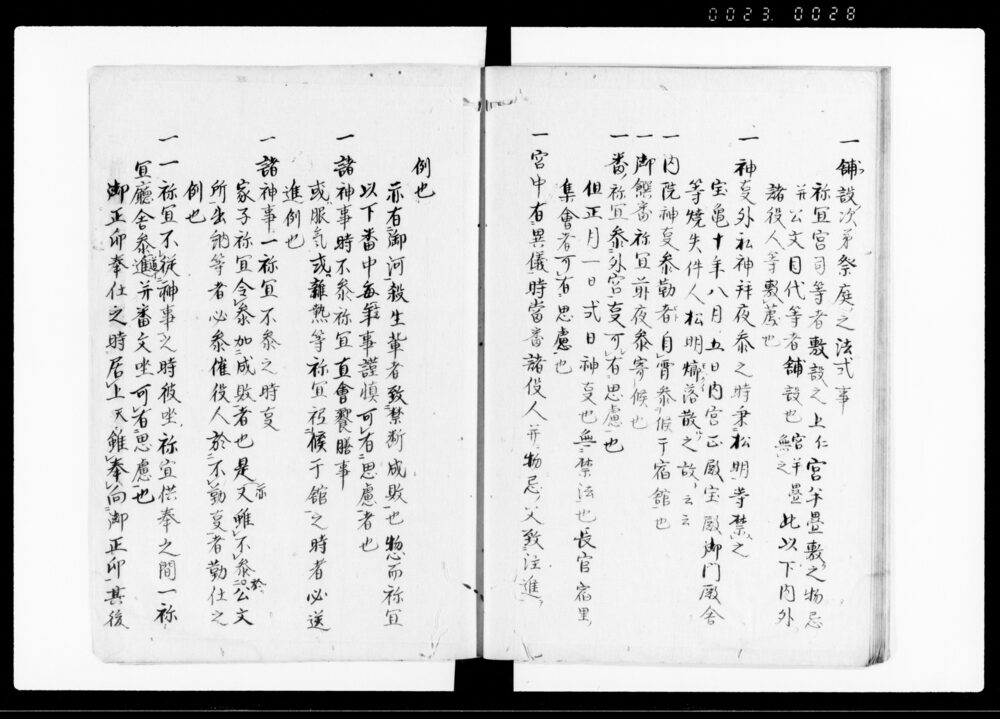 0023. 0028
一舗設次第祭庭之法式事
祢宜宮司等者敷設之上仁宮半畳敷之物忌
并公文目代等者舗設也宮半畳無之此以下内外
諸役人等敷薦也
一神事外私神拜夜参之時秉松明等禁之
宝亀十年八月五日内宮正殿宝殿御門殿舎
等焼失件人松明落散之故云云
一内院神事参勤者自宵参候于宿舘也
一御饌番祢宜前夜参寄候也
一番祢宜参外宮事可有思慮也
但正月一日式日神事也無禁法也長官宿里
集會者可有思慮也
一宮中有異儀時當番諸役人并物忌父致注進
例也
亦有御河殺生輩者致禁断成敗也惣而祢宜
以下番中毎事謹慎可有思慮者也
一諸神事時不参祢宜直會饗膳事
或服気或雑熱等祢宜祗候于舘之時者必送
進例也
一諸神事一祢宜不参之時事
家子祢宜令参加成敗者也是又雖不参於公文
所出納等者必参催役人於不勤事者勤仕之
例也
一一祢宜不従神事之時彼坐祢宜供奉之間一祢
宜廳舎参進并番文坐可有思慮也
御正印奉仕之時居上天雖奉向御正印其後